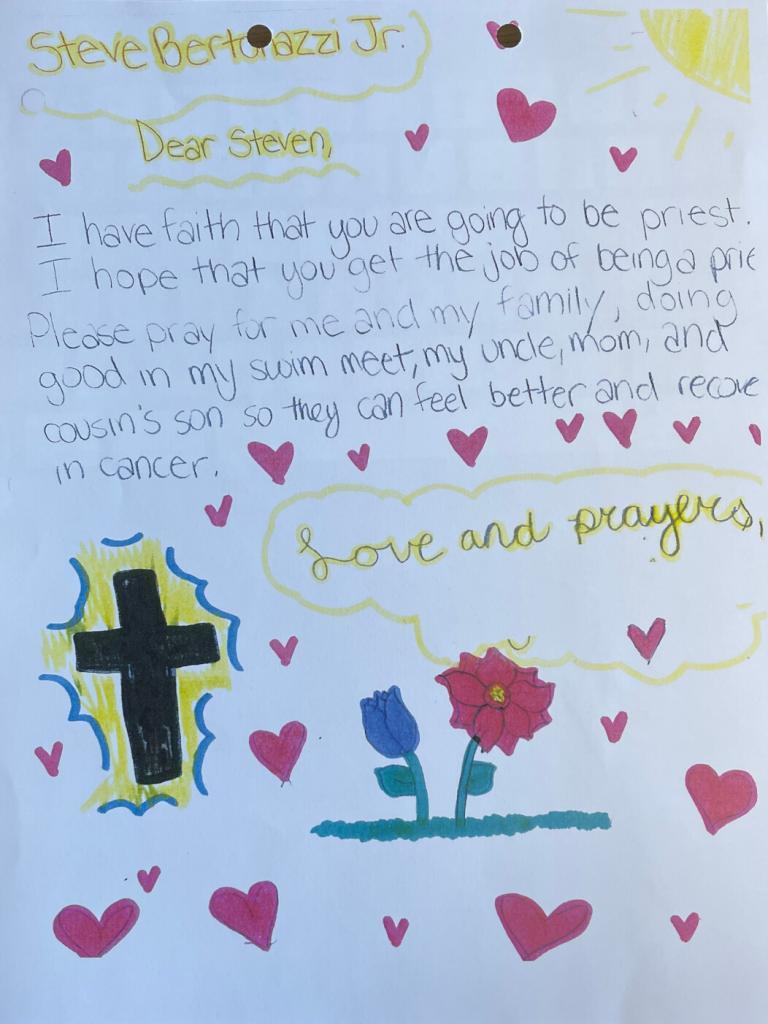 Steve Bertorazzi Jr.
Dear Steven,
I have faith that you are going to be priest.
I hope that you get the job of being a prie
Please pray for me and my family, doing
good in my swim meet, my uncle, mom, and
cousin's son so they can feel better and recove
in cancer.
Love and prayers,